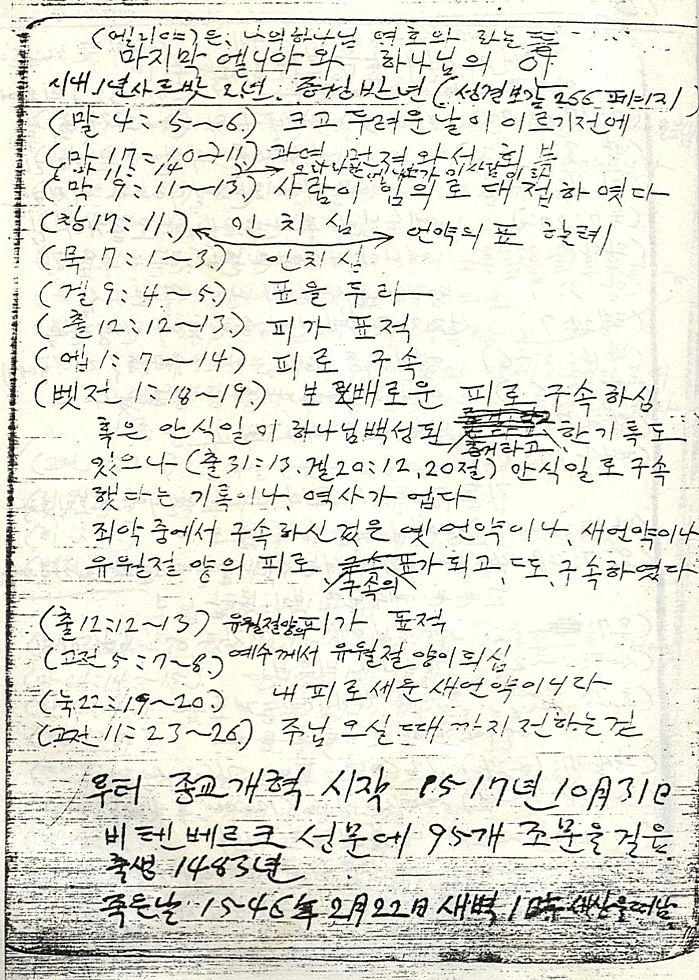 (엘리야)은, 나의하나님 여호와 라는뜻
마지막 엘니야와 하나님의 인
시대 1년사르밧 2년. 중심반년 (성경보감 266 페이지)
(말 4:5~6.) 크고 두려운날이 이르기전에
(마 17:10~11.) 과연 먼저와서 회복
(마 11:14
(막 9:11~13.) 사람이 힘의로 대접하엿다
(창17:11.) 인치심 언약의 표 할례
(묵 7:1~3.) 인치심
(겔 9:4~5.) 표을 두라
(출12:12~13.) 피가 표적
(엡1:7~14) 피로 구속
(벳전 1:18~19.) 보배로운 피로 구속하심
혹은 안식일이 하나님백성된 증거라고 한기록도
있으나 (출31:13, 겔20:12, 20절) 안식일로구속
했다는 기록이나, 역사가 업다
죄악중에서 구속하신것은 옛언약이나, 새언약이나
유월절 양의 피로 구속의 표가되고, 또, 구속하였다.
(출12:12~13) 유월절양의피가 표적
(고전5:7~8.) 예수께서 유월절양이되심
(눅22:19~20.) 내 피로세운새언약이니라
(고전11:23~26.) 주님 오실때까지전하는것
루터 종교개혁 시작 1517년 10月31日
비텐베르크 성문에 95개 조문을걸음
출생 1483년
죽은날 1546年 2月22日 새벽 1時 세상을떠남